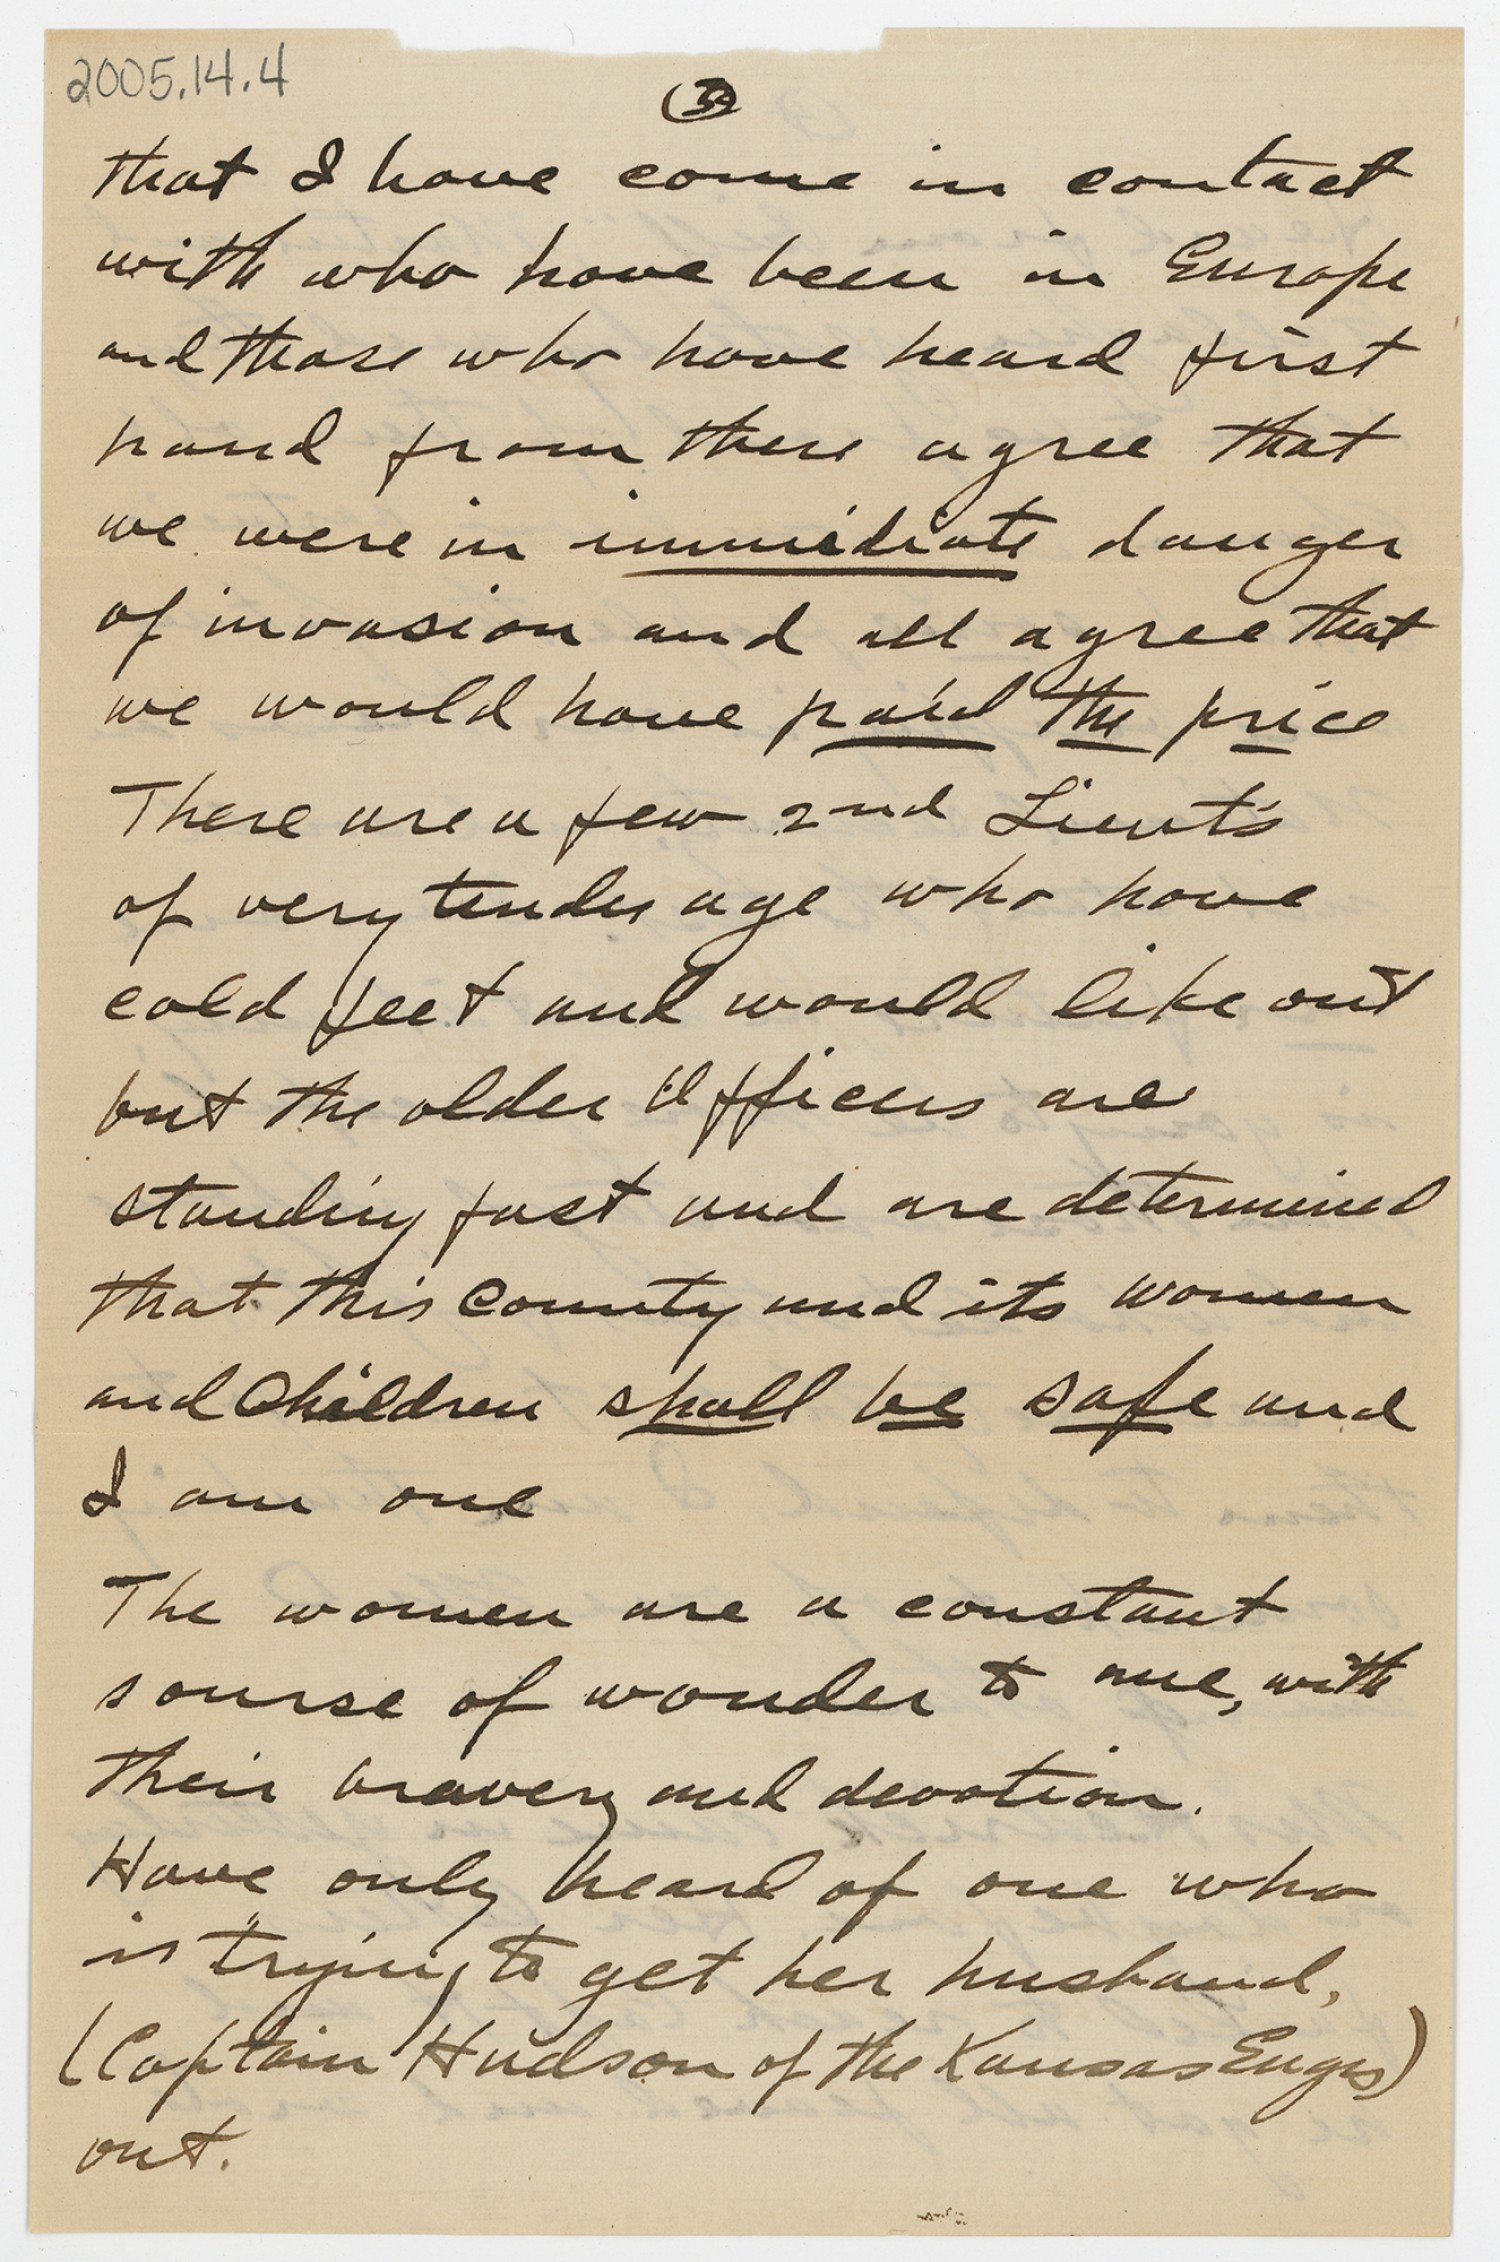 2005.14.4
(3)
that I have come in contact
with who have been in Europe
and those who have heard first
hand from there agree that
we were in immidiate danger
of invasion and all agree that
we would have paid the price
There are a few 2nd Lieut's
of very tender age who have
cold feet and would like out
but the older Officers are
standing fast and are determined
that this County and its women
and Children shall be safe and
I am one
The women are a constant
sourse of wonder to me, with
their bravery and devotion.
Have only heard of one who
is trying to get her husband,
(Captain Hudson of the Kansas Engrs)
out.